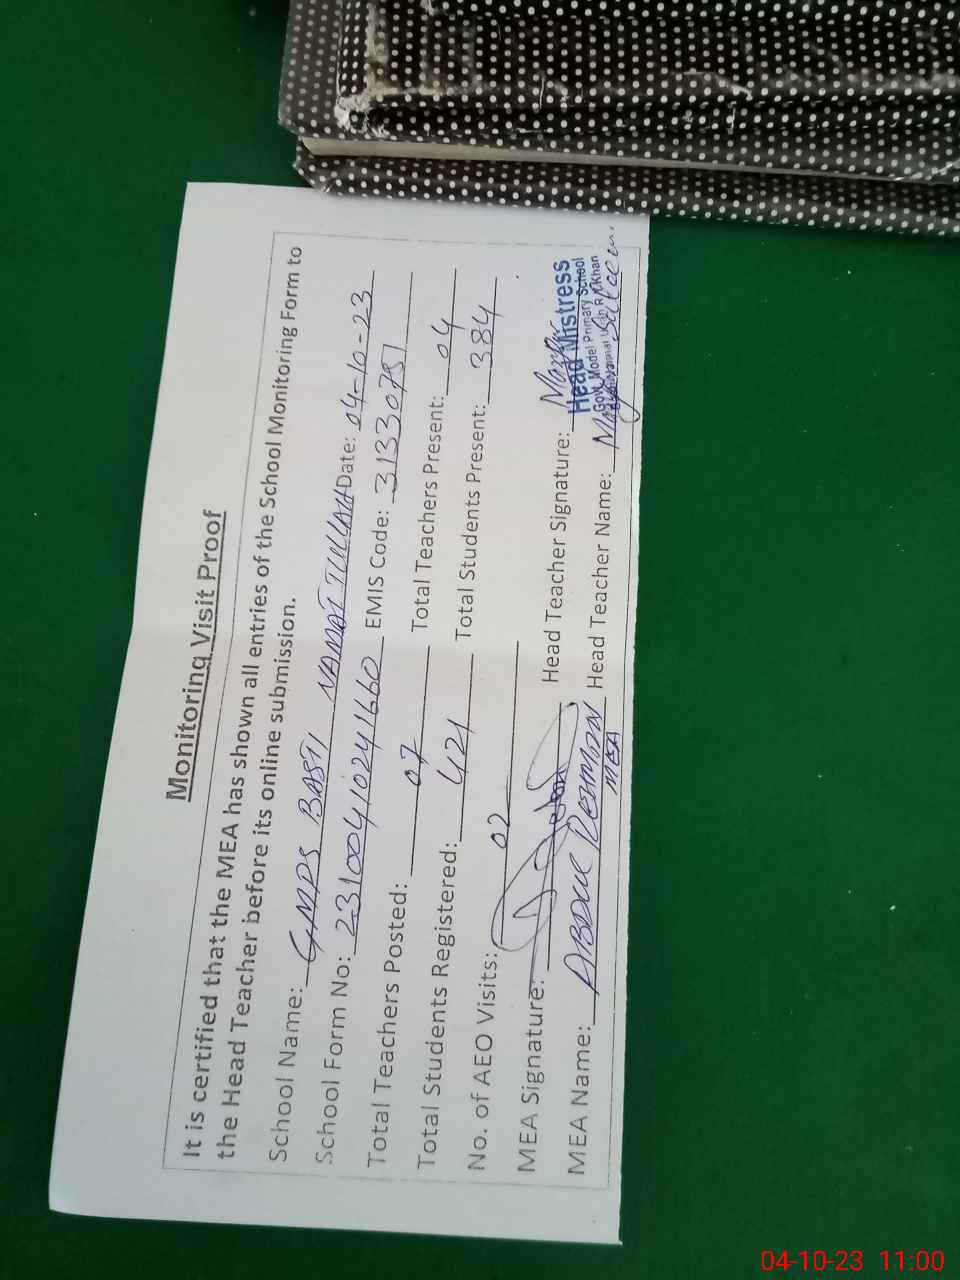 Monitoring Visit Proof
It is certified that the MEA has shown all entries of the School Monitoring Form to
the Head Teacher before its online submission.
School Name: GMPS BASTI NAMATTULLAH Date: 04-10-23
School Form No: 2310041024 1660 EMIS Code: 31330751
Total Teachers Posted: 07 Total Teachers Present: 04
Total Students Registered: 421 Total Students Present: 384
No. of AEO Visits: 02
MEA Signature: Head Teacher Signature:
Head Mistress
Govt. Model Primary School
R.Y.Khan
MEA Name: ABDUL REHMAN Head Teacher Name: Saleem
MEA
04-10-23 11:00